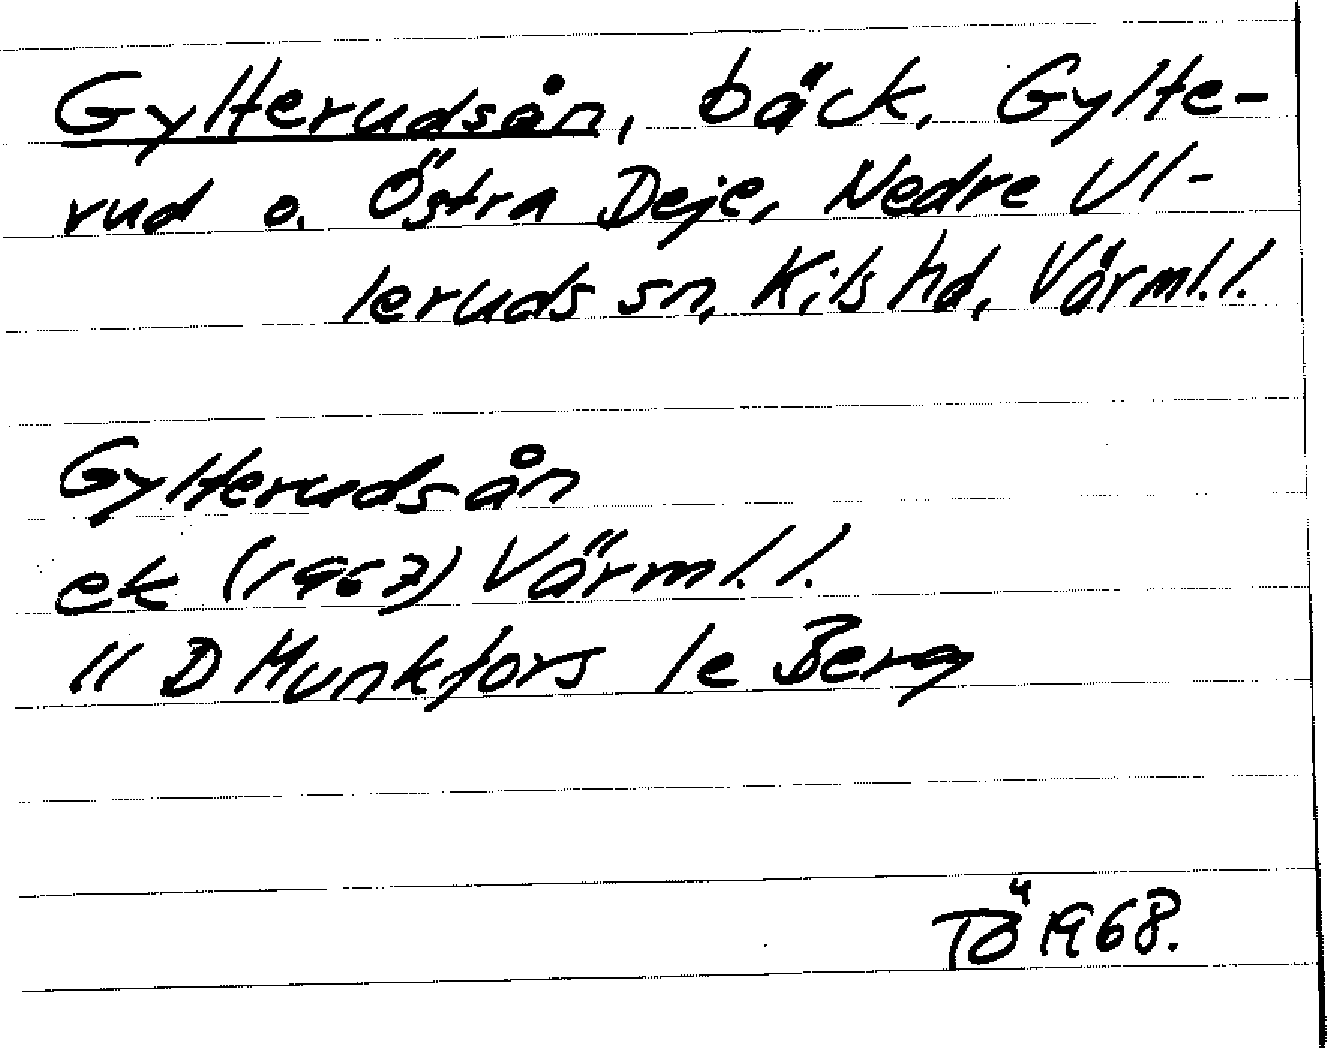 Gylterudsån, bäck, Gylte-
rud o. Östra Deje, Nedre Ul-
leruds sn, Kils hd, Värml.l.
Gylterudsån
ek (1967) Värml.l.
11 D Munkfors 1e Berg
TÖ 1968.